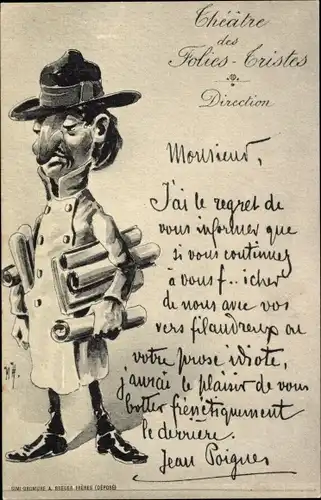 Théâtre
des
Folies-Tristes
Direction
Monsieur,
J'ai le regret de
vous informer que
si vous continuez
à vous f..icher
de nous avec vos
vers filandreux ou
votre prose idiote,
j'aurai le plaisir de vous
botter frénétiquement
le derrière.
Jean Poigne
SIMI-GRUMIERE A. BERGER FRÈRES (DÉPOSÉ)